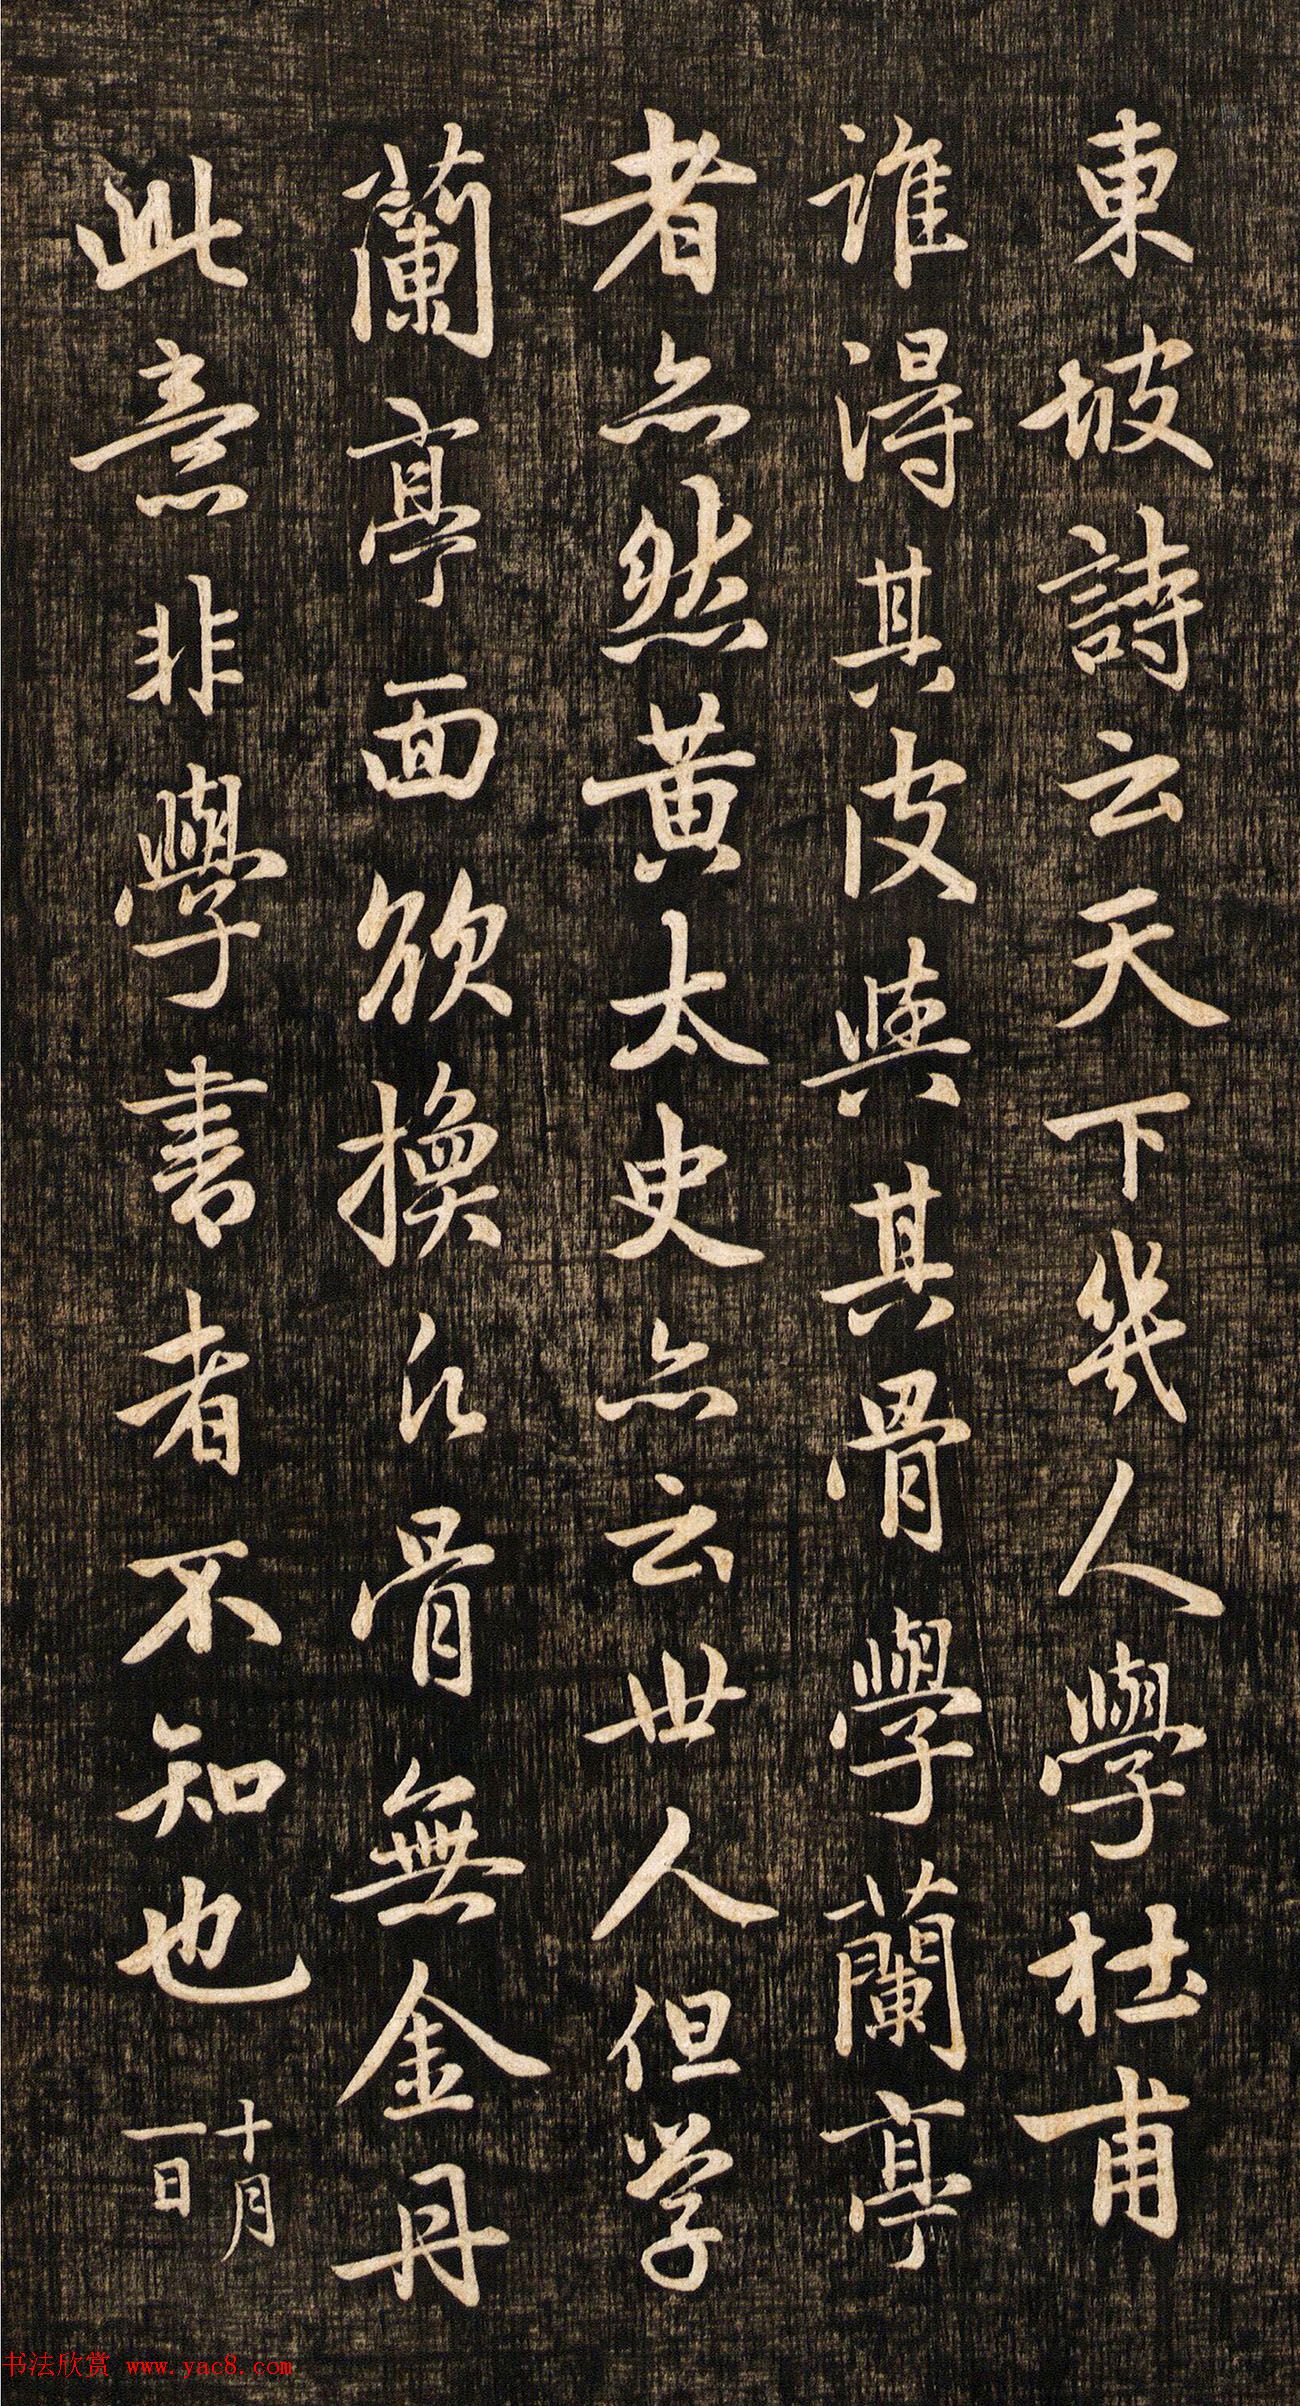 東坡詩云天下幾人學杜甫
誰得其皮與其骨學蘭亭
者亦然黃太史亦云世人但学
蘭亭面欲換凡骨無金丹
此意非學書者不知也
十月
一日
书法欣赏 www.yac8.com